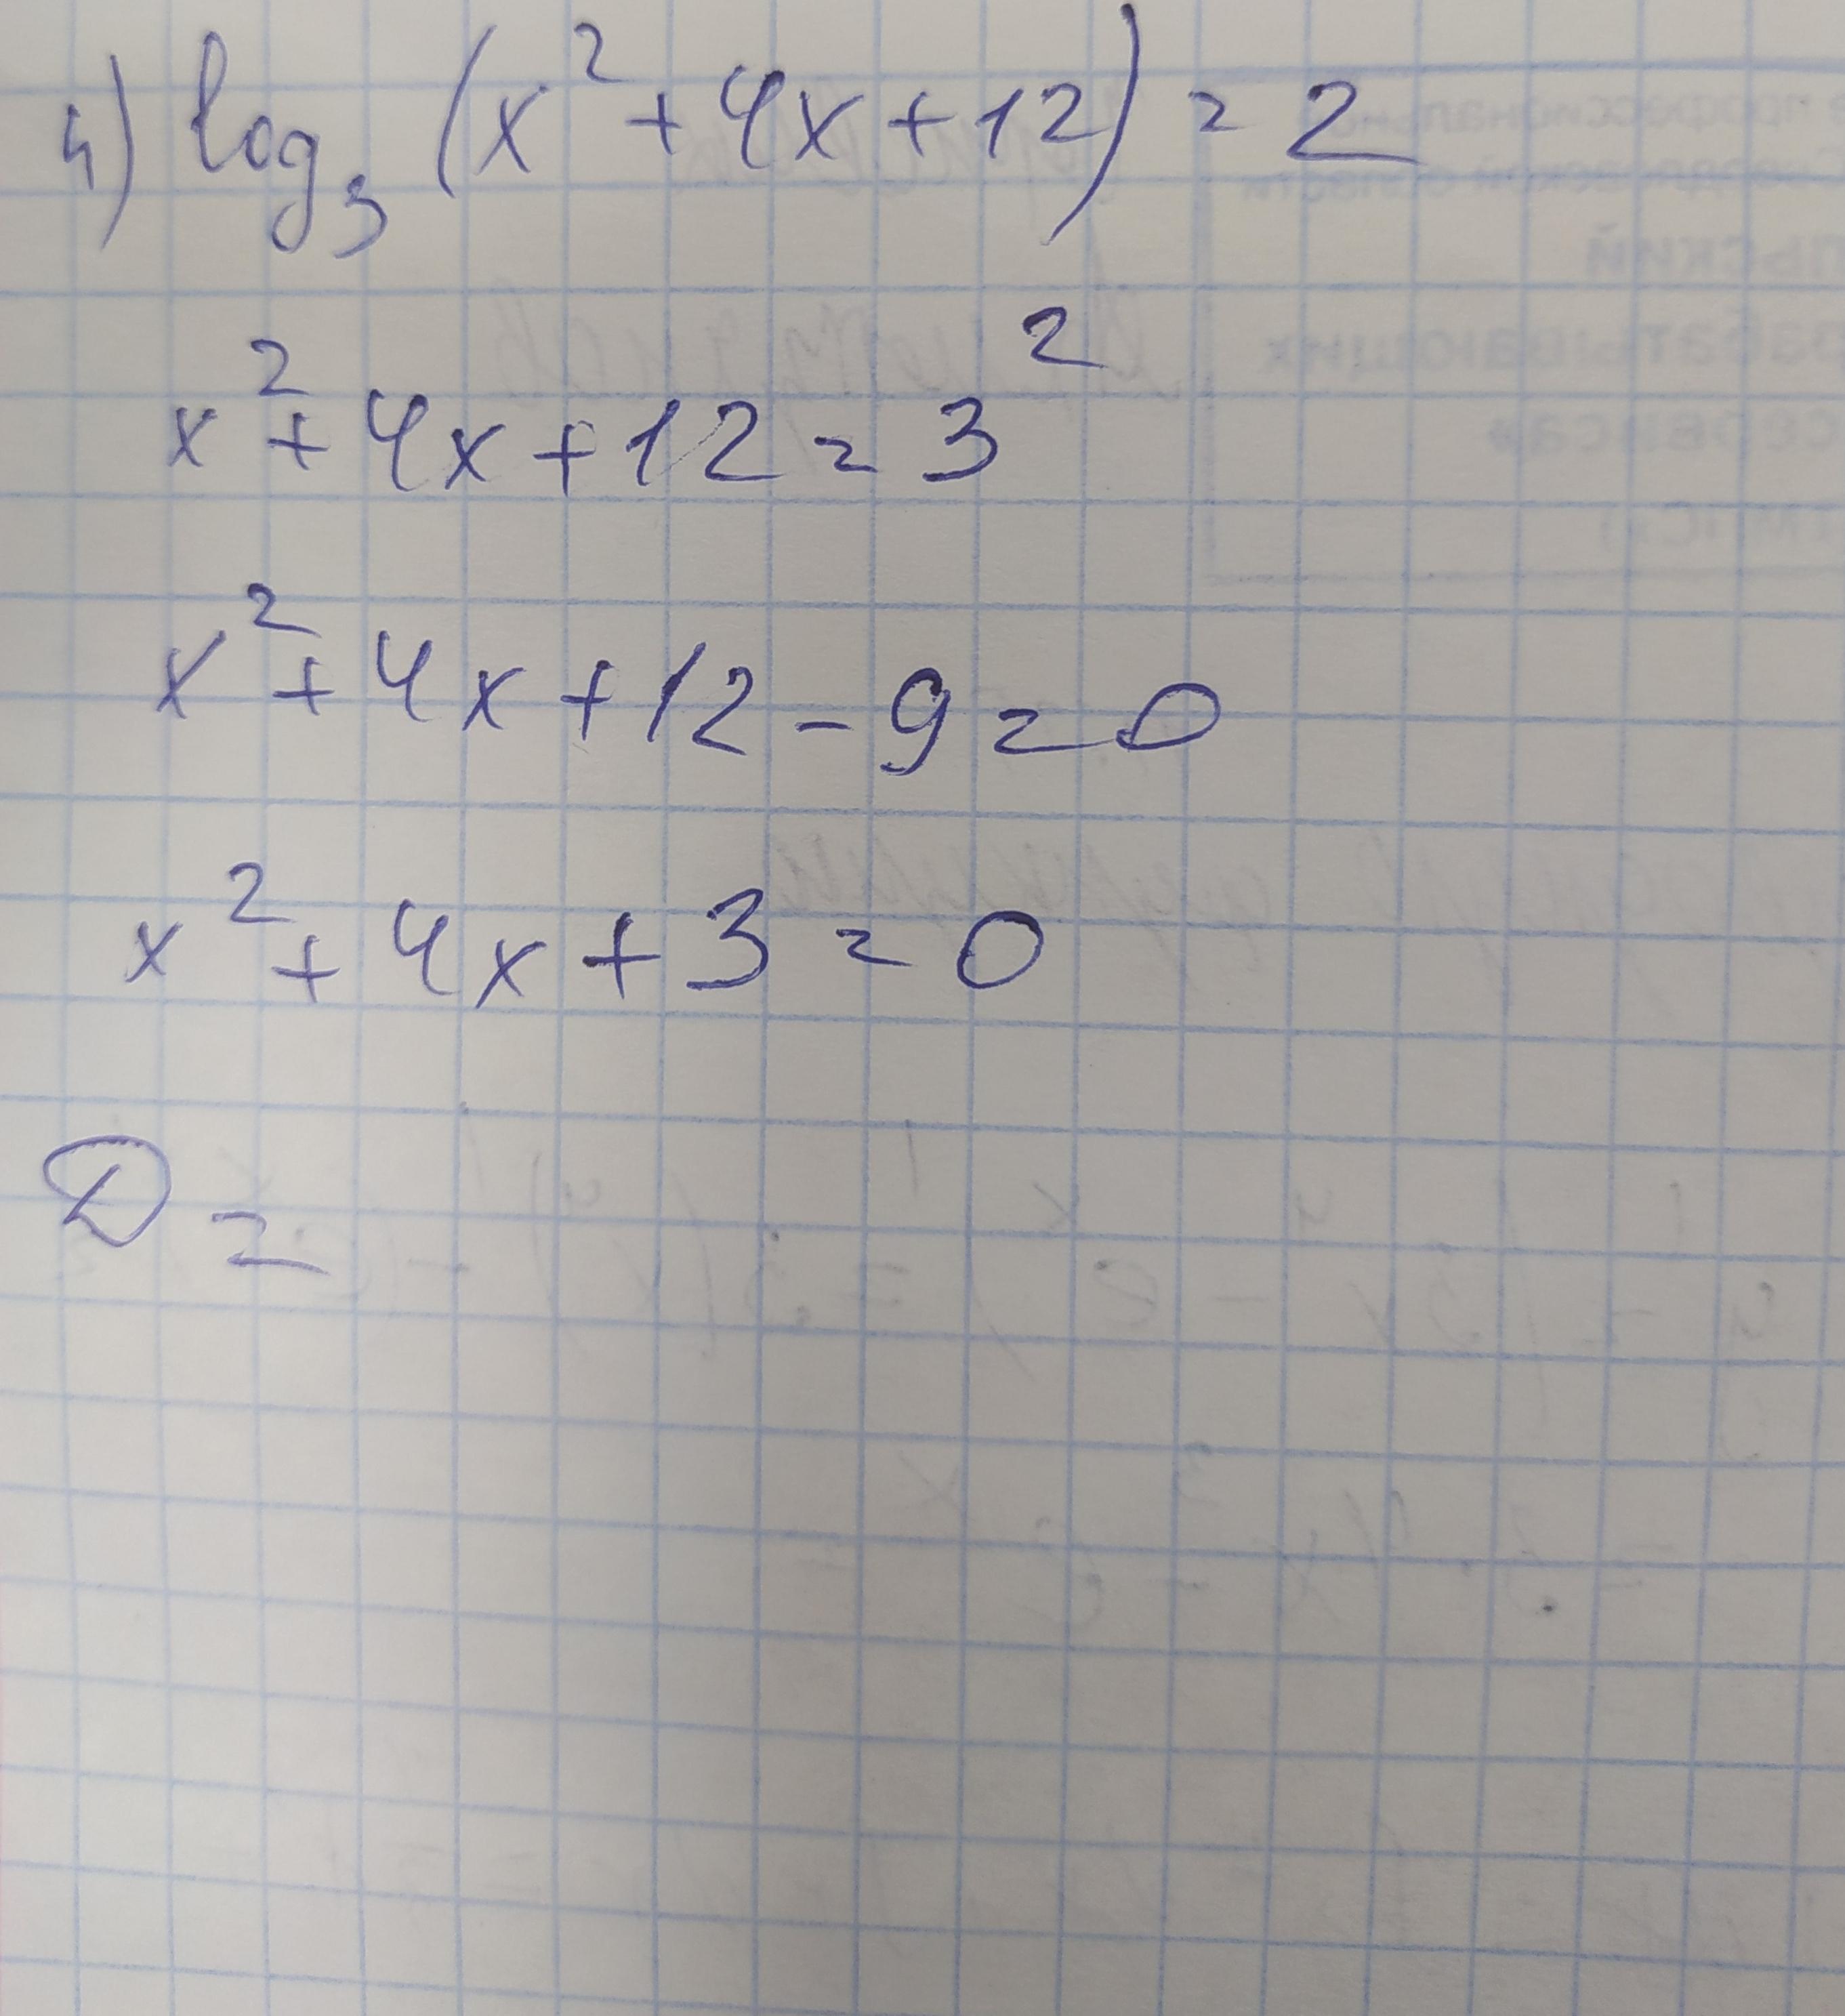 4) log₃ (x² + 4x + 12) = 2
x² + 4x + 12 = 3²
x² + 4x + 12 - 9 = 0
x² + 4x + 3 = 0
D =